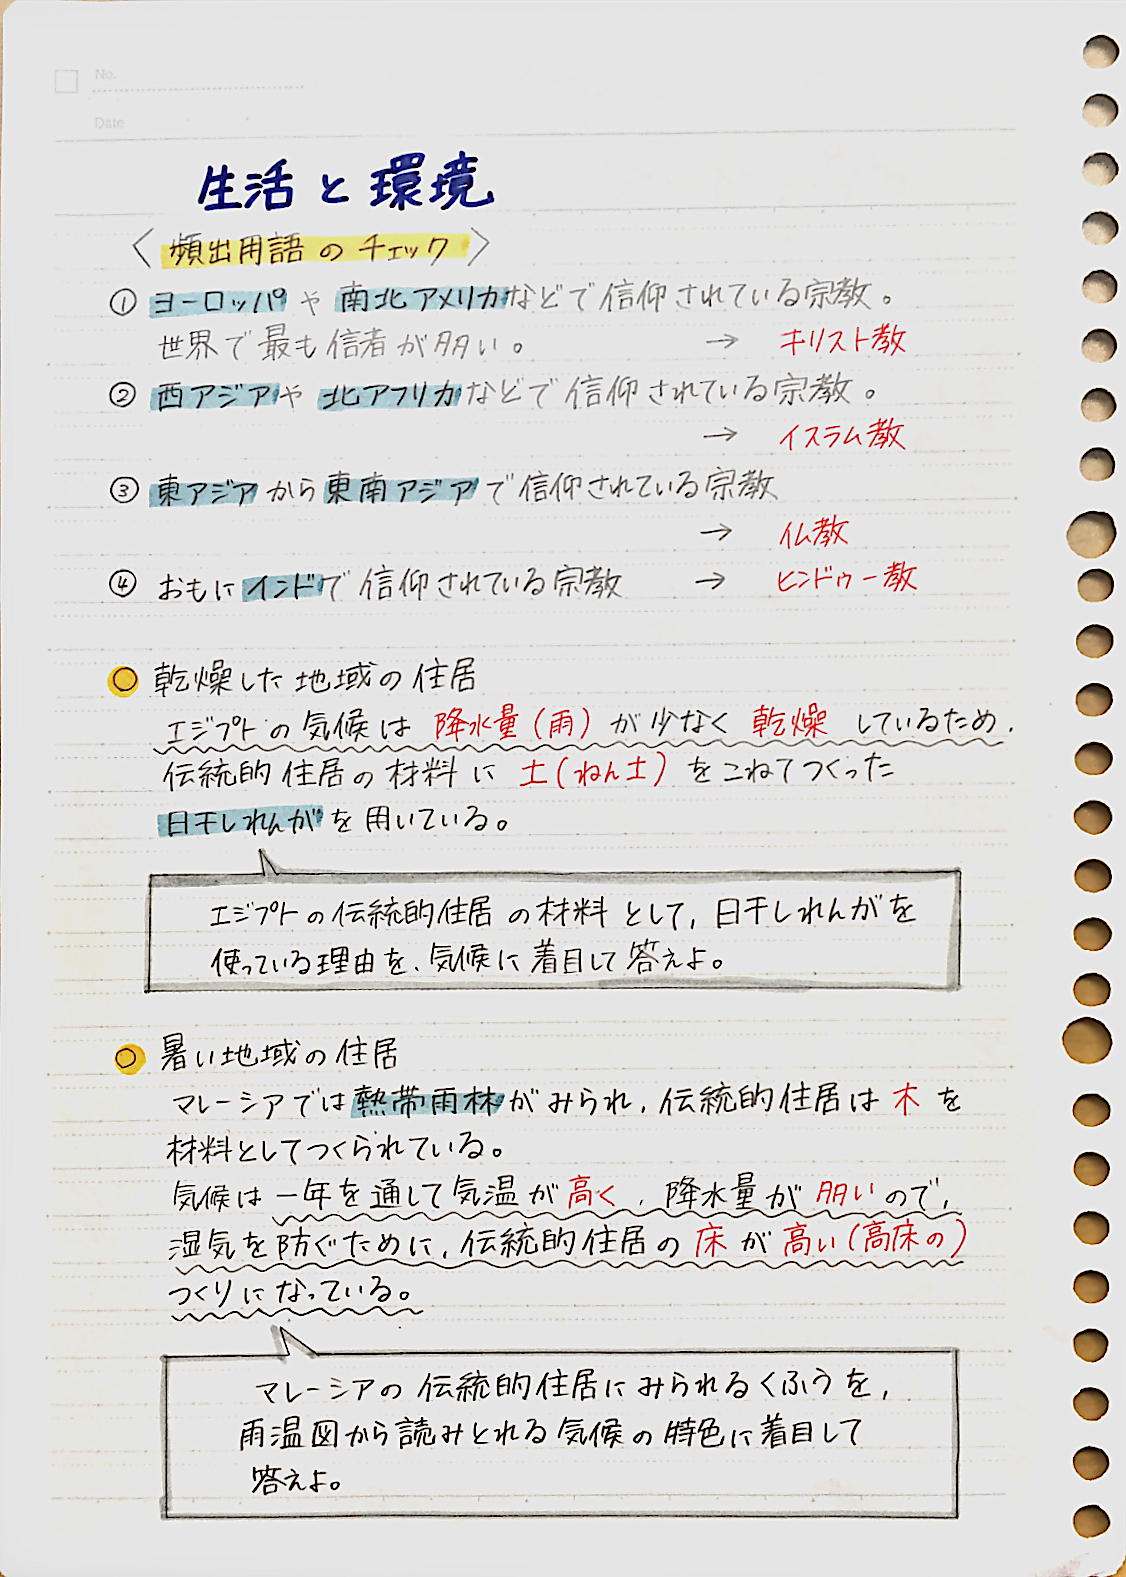 No.
Date
生活と環境
〈頻出用語のチェック〉
① ヨーロッパや南北アメリカなどで信仰されている宗教。
世界で最も信者が多い。 → キリスト教
② 西アジアや北アフリカなどで信仰されている宗教。
→ イスラム教
③ 東アジアから東南アジアで信仰されている宗教
→ 仏教
④ おもにインドで信仰されている宗教 → ヒンドゥー教
乾燥した地域の住居
エジプトの気候は降水量(雨)が少なく乾燥しているため.
伝統的住居の材料に土(ねん土)をこねてつくった
日干しれんがを用いている。
エジプトの伝統的住居の材料として,日干しれんがを
使っている理由を、気候に着目して答えよ。
暑い地域の住居
マレーシアでは熱帯雨林がみられ,伝統的住居は木を
材料としてつくられている。
気候は一年を通して気温が高く,降水量が多いので,
湿気を防ぐために,伝統的住居の床が高い(高床の)
つくりになっている。
マレーシアの伝統的住居にみられるくふうを,
雨温図から読みとれる気候の特色に着目して
答えよ。